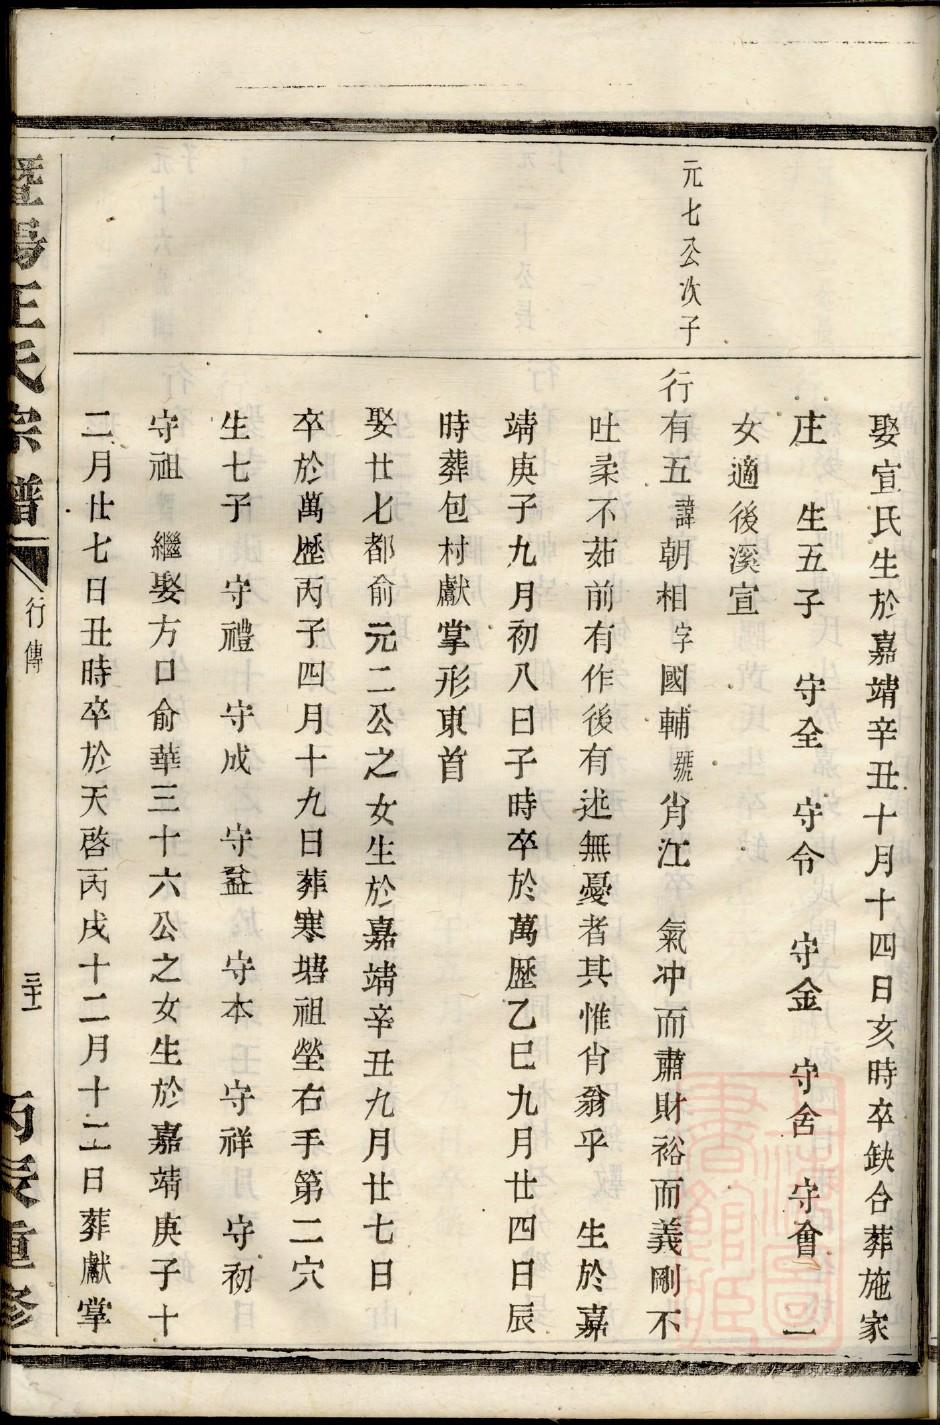 娶宣氏生於嘉靖辛丑十月十四日亥時卒缺合葬施家
庄　生五子　守全　守令　守金　守舍　守會　一
女適後溪宣
元七公次子
行有五諱朝相字國輔號肖江　氣冲而肅財裕而義剛不
吐柔不茹前有作後有述無憂者其惟肖翁乎　生於嘉
靖庚子九月初八日子時卒於萬歷乙巳九月廿四日辰
時葬包村獻掌形東首
娶廿七都俞元二公之女生於嘉靖辛丑九月廿七日
卒於萬歷丙子四月十九日葬寒塘祖塋右手第二穴
生七子　守禮　守成　守益　守本　守祥　守初
守祖　繼娶方口俞華三十六公之女生於嘉靖庚子十
二月廿七日丑時卒於天啓丙戌十二月十二日葬獻掌
暨陽王氏宗譜
行傳
丙辰重修